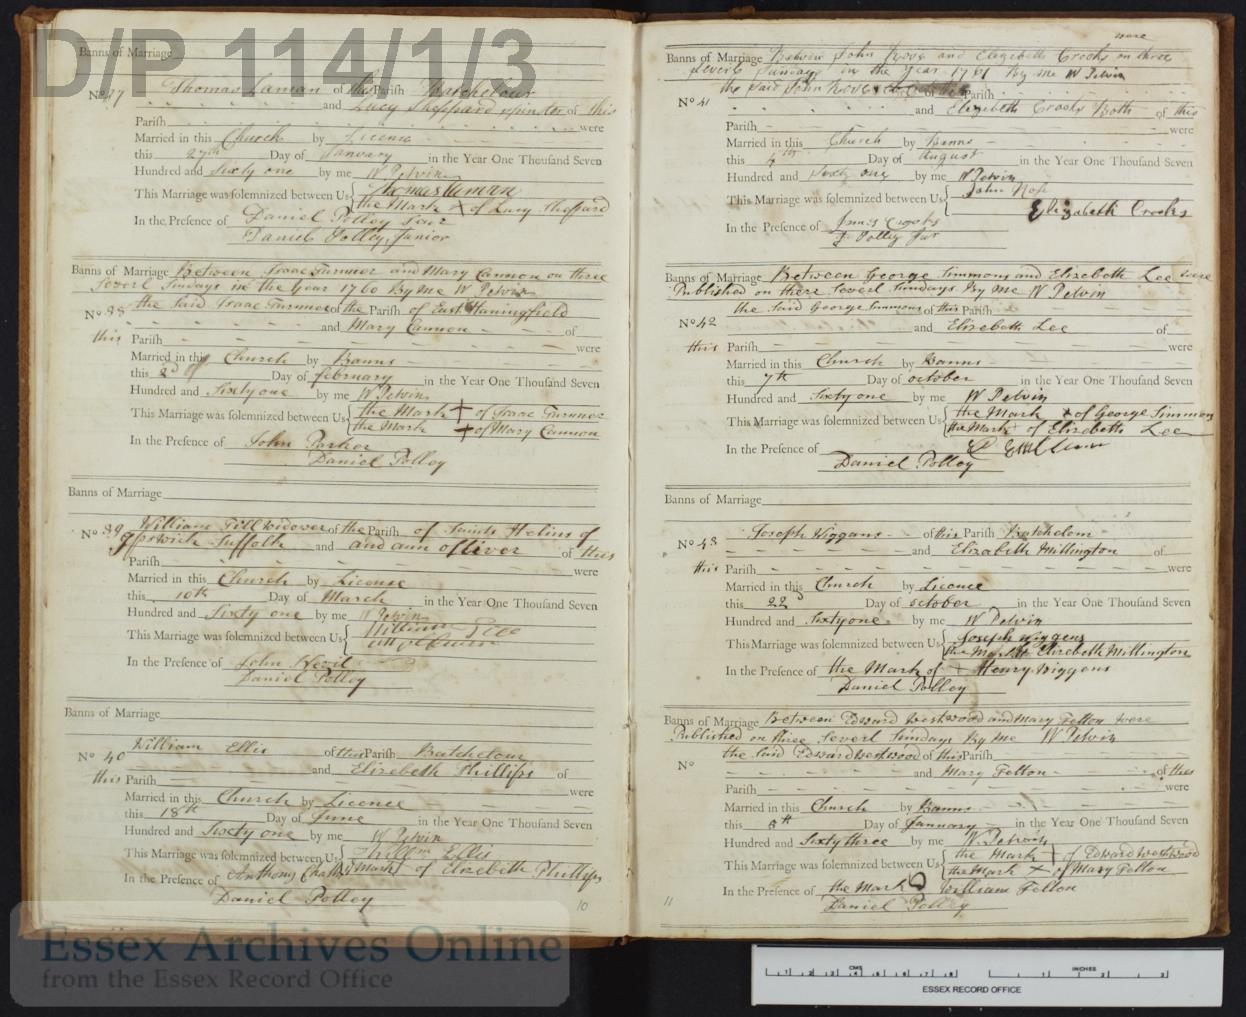 D/P 114/1/3
Banns of Marriage
No 37 Thomas Laman of the Parish Batchelour
and Lucy Sheppard spinster of this
Parish were
Married in this Church by Licence
this 27th Day of January in the Year One Thousand Seven
Hundred and Sixty one by me W Pelvin
This Marriage was solemnized between Us Thomas Laman
the Mark X of Lucy Sheppard
In the Presence of Daniel Polley
Daniel Polley, Junior
Banns of Marriage Between Isaac Turnner and Mary Cannon on three
Severl Sundays in the Year 1760 By Me W Pelvin
No 38 the said Isaac Turnner of the Parish of East Haningfield
and Mary Cannon of
this Parish were
Married in this Church by Banns
this 2d of Day of february in the Year One Thousand Seven
Hundred and Sixty one by me W Pelvin
This Marriage was solemnized between Us the Mark + of Isaac Turnner
the Mark + of Mary Cannon
In the Presence of John Parker
Daniel Polley
Banns of Marriage
No 39 William Gill Widower of the Parish of Saints Helins of
Ipswich Suffolk and and ann olliver of this
Parish were
Married in this Church by Licence
this 10th Day of March in the Year One Thousand Seven
Hundred and Sixty one by me W Pelvin
This Marriage was solemnized between Us William Gill
In the Presence of John Nevil
Daniel Polley
Banns of Marriage
No 40 William Ellis of this Parish Batchelour
and Elizebeth Phillips of
this Parish were
Married in this Church by Licence
this 18th Day of June in the Year One Thousand Seven
Hundred and Sixty one by me W Pelvin
This Marriage was solemnized between Us Willm Ellis
Mark of Elizebeth Phillips
In the Presence of Anthony
Daniel Polley
10
were
Banns of Marriage Betwin John Nove and Elezebeth Crooks on three
severl Sundays in the Year 1761 By me W Pelvin
No 41 the said John Nove of Parish
and Elizebeth Crooks Both of this
Parish were
Married in this Church by Banns
this 4th Day of August in the Year One Thousand Seven
Hundred and Sixty one by me W Pelvin
This Marriage was solemnized between Us John
Elizabeth Crooks
In the Presence of Crooks
Polley
Banns of Marriage Between George Simmons and Elizebeth Lee were
Published on there Severl Sundays By me W Pelvin
No 42 the Said George Simmons of this Parish
and Elizebeth Lee of
this Parish were
Married in this Church by Banns
this 7th Day of october in the Year One Thousand Seven
Hundred and Sixty one by me W Pelvin
This Marriage was solemnized between Us the Mark X of George Simmon
the Mark of Elizebeth Lee
In the Presence of
Daniel Polley
Banns of Marriage
No 43 Joseph Wiggans of this Parish Batchelour
and Elizabeth Millington of
this Parish were
Married in this Church by Licence
this 22d Day of october in the Year One Thousand Seven
Hundred and Sixty one by me W Pelvin
This Marriage was solemnized between Us Joseph Wiggens
the Mark Elizebeth Millington
In the Presence of the Mark of + Henry Wiggens
Daniel Polley
Banns of Marriage Between Edward Westwood and Mary Felton were
Published on three Severl Sundays By Me W Pelvin
No the said Edward Westwood of this Parish
and Mary Felton of this
Parish were
Married in this Church by Banns
this 8th Day of January in the Year One Thousand Seven
Hundred and Sixty three by me W. Pelvin
This Marriage was solemnized between Us the Mark + of Edward Westwood
the Mark X of Mary Felton
In the Presence of the Mark William Felton
Daniel Polley
11
Essex Archives Online
from the Essex Record Office
CMS
INCHES
ESSEX RECORD OFFICE